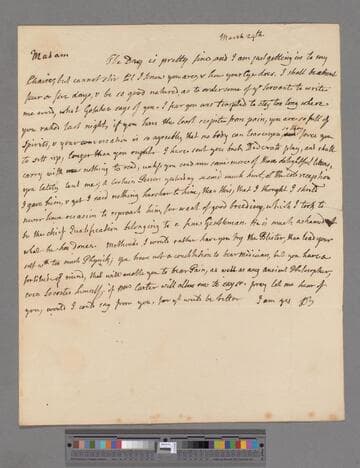 March 29th
Madam The Day is pretty fine and I am just getting in to my
Chaise, but cannot stir til I know you are, & how your Eye does. I shall be about
four or five days, & be so good natured, as to order some of yr servants to write
me word, what says of you. I fear you was tempted to stay too long where
you passed last night, if you have the least respite from pain, you are so full of
spirits, & your conversation is so agreable, that no body can force you
to sett up, longer than you ought. I have sent you back Diderots play, and shall
carry with me nothing to read, unless you send me some more of those delightfull letters,
you lately lent me, yesterday much hurt, at the reception
I gave him, & yet I said nothing harsher to him, than this, that I thought I should
never have occasion to reproach him, for want of good breeding, which I took to
be the chief Qualification belonging to a fine Gentleman. He is much ashamed
what he has done. Methinks I would rather have you try the Blister, than load your
self with too much Physick; you have not a constitution to bear Medicines, but you have a
fortitude of mind, that will enable you to bear Pain, as well as any ancient Philosopher,
even Socrates himself, if Mrs Carter will allow me to say so. pray let me hear of
you, would I could say from you, for yt would be better I am yrs